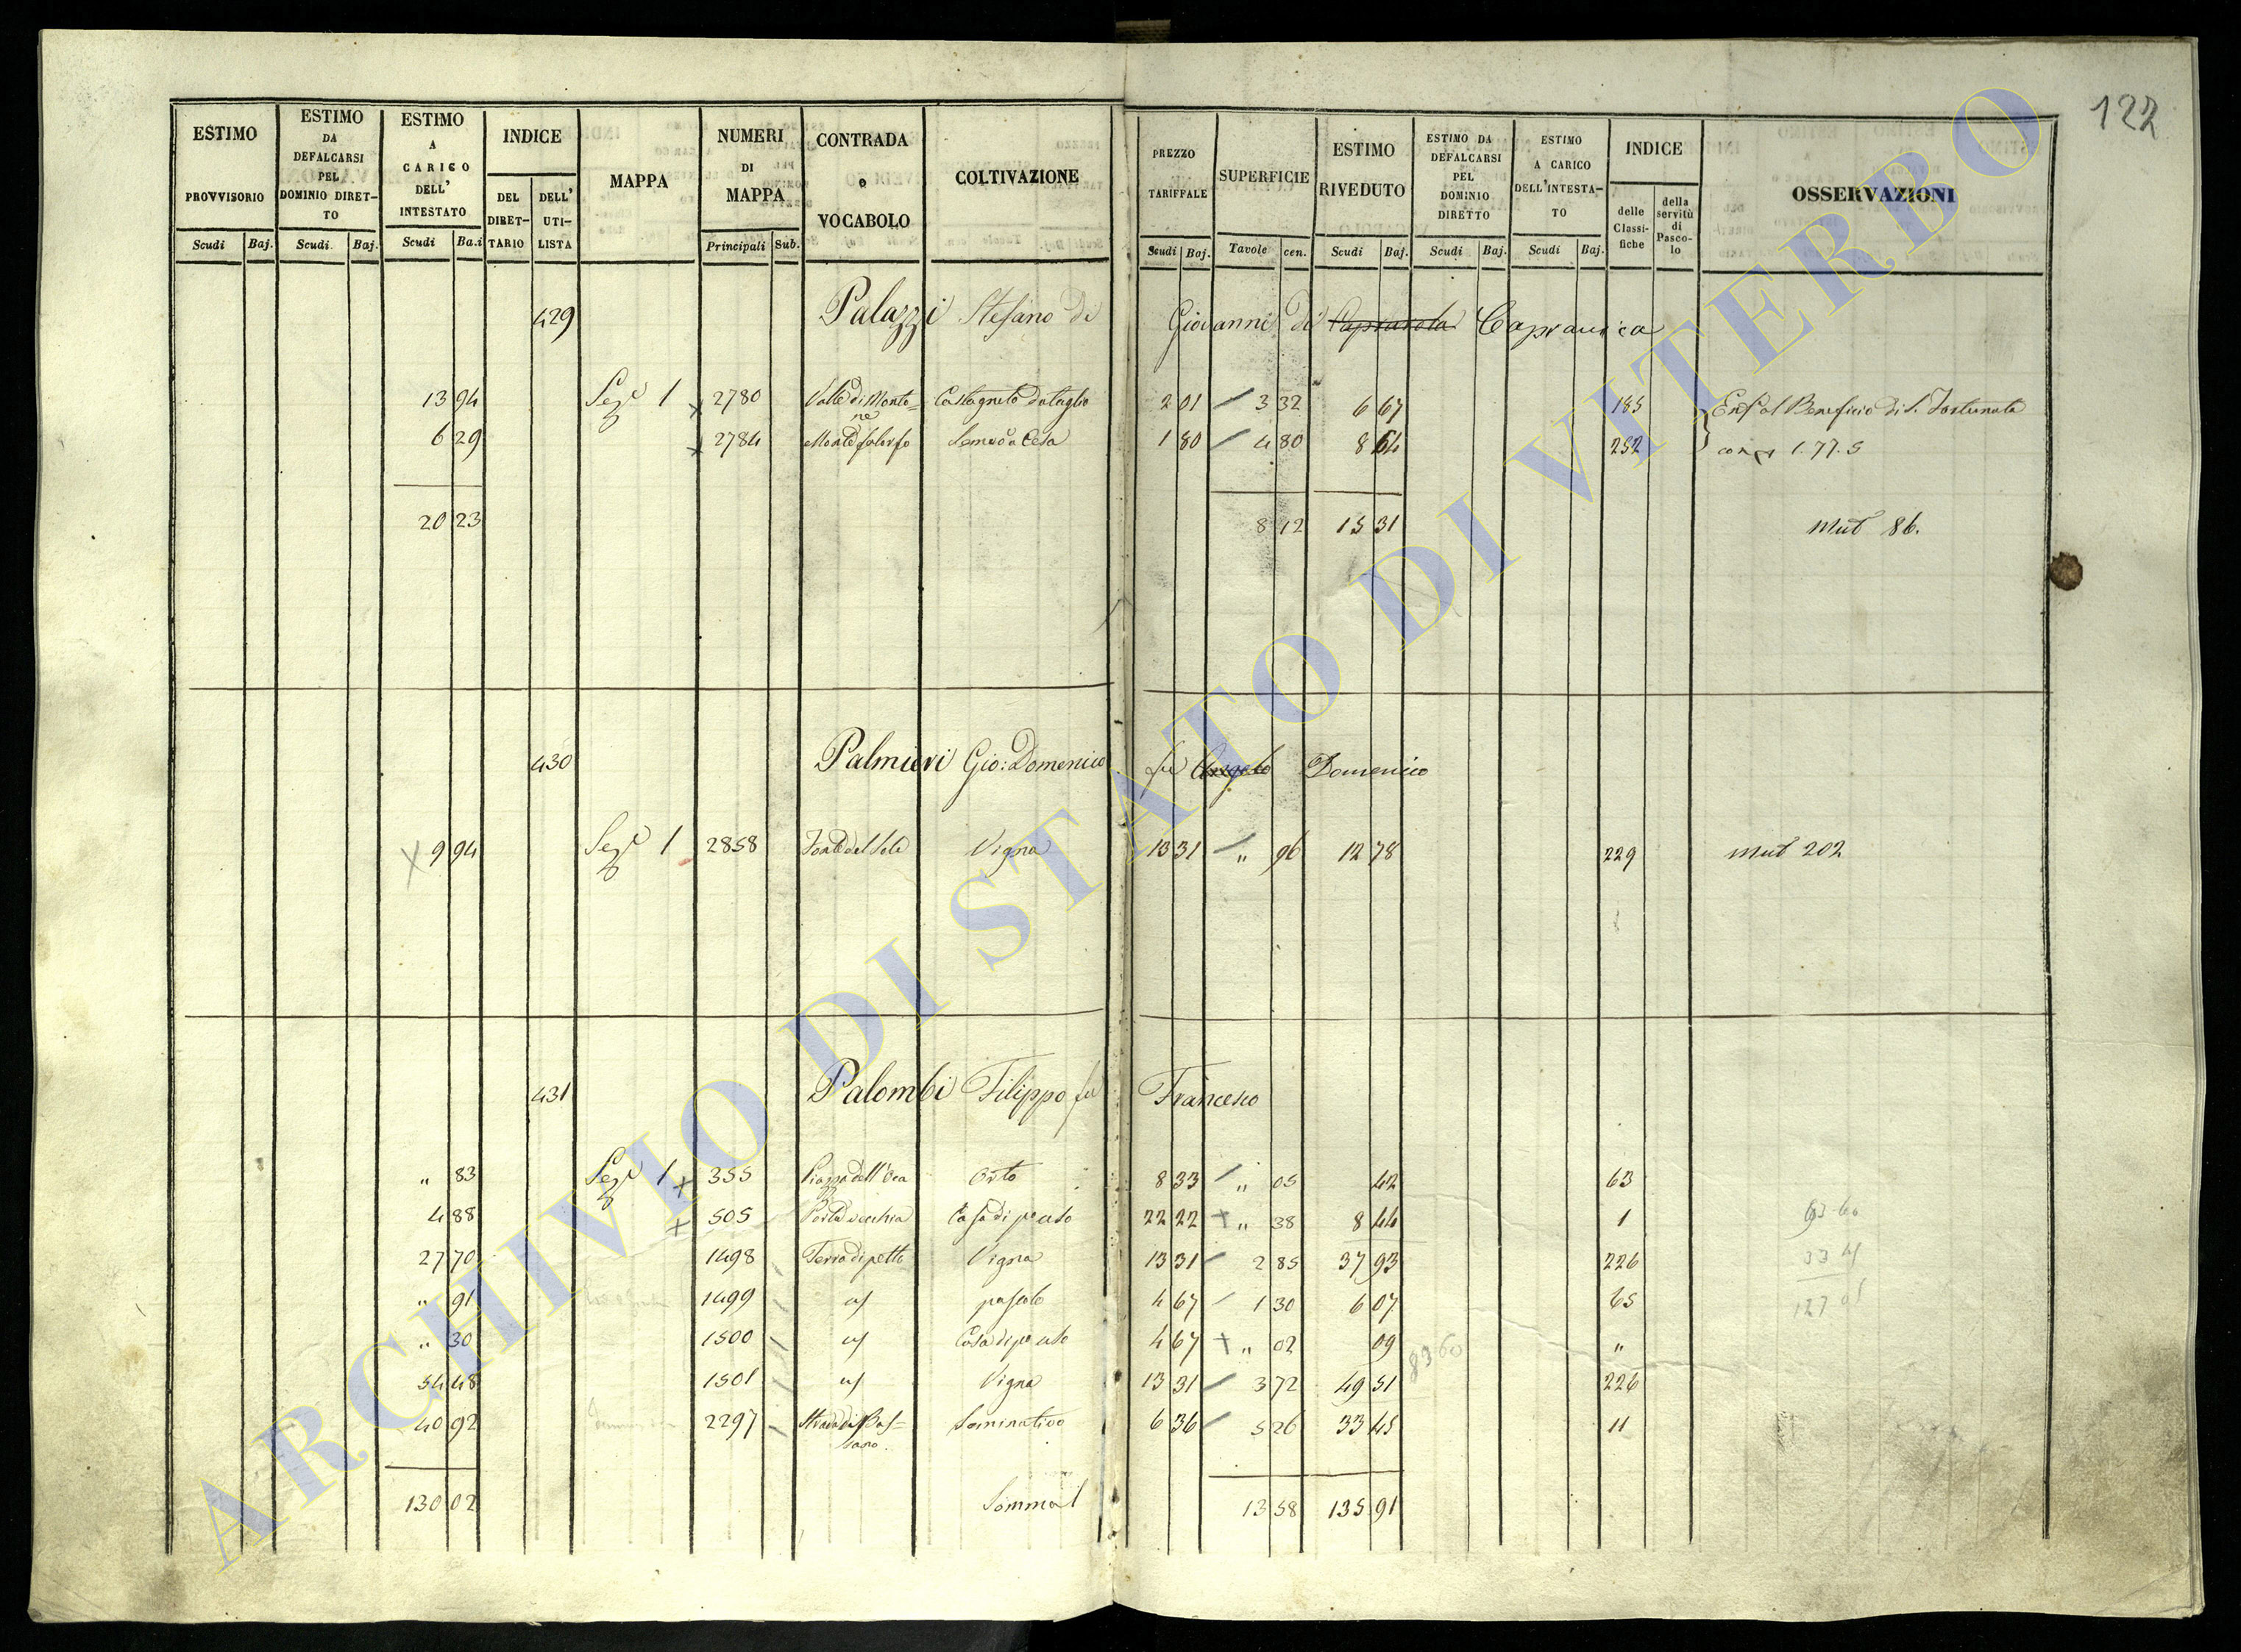 122
ESTIMO PROVVISORIO | ESTIMO DA DEFALCARSI PEL DOMINIO DIRETTO | ESTIMO A CARICO DELL' INTESTATO | INDICE | MAPPA | NUMERI DI MAPPA | CONTRADA o VOCABOLO | COLTIVAZIONE | PREZZO TARIFFALE | SUPERFICIE | ESTIMO RIVEDUTO | ESTIMO DA DEFALCARSI PEL DOMINIO DIRETTO | ESTIMO A CARICO DELL'INTESTATO | INDICE | OSSERVAZIONI
DEL DIRETTARIO | DELL' UTILISTA | delle Classifiche | della servitù di Pascolo
Scudi | Baj. | Scudi | Baj. | Scudi | Ba.i | Principali | Sub. | Scudi | Baj. | Tavole | cen. | Scudi | Baj. | Scudi | Baj. | Scudi | Baj.
429 Palazzi Stefano di Giovanni di Capranica
13 94 Sez.e 1 2780 Valle di Montone Castagneto da taglio 2 01 3 32 6 67 185 Enf. al Beneficio di S. Fortunata
6 29 2784 1 80 4 80 8 64 252 1.77.5
20 23 8 12 15 31 Mut 86.
430 Palmieri Gio: Domenico fu Angelo Domenico
9 94 Sez.e 1 2858 Vigna 13 31 " 96 12 78 229 Mut 202
431 Palombi Filippo fu Francesco
" 83 Sez.e 1 355 Piazza dell'Oca Orto 8 33 " 05 42 63
4 88 505 Porta vecchia Casa di 22 22 " 38 8 44 1
27 70 1498 Vigna 13 31 2 85 37 93 226
" 91 1499 pascolo 4 67 1 30 6 07 65
" 30 1500 Casa di 4 67 " 02 09 "
54 48 1501 Vigna 13 31 3 72 49 51 226
40 92 2297 Strada di Bassano Seminativo 6 36 5 26 33 45 11
83 60
130 02 Somma 13 58 135 91
ARCHIVIO DI STATO DI VITERBO